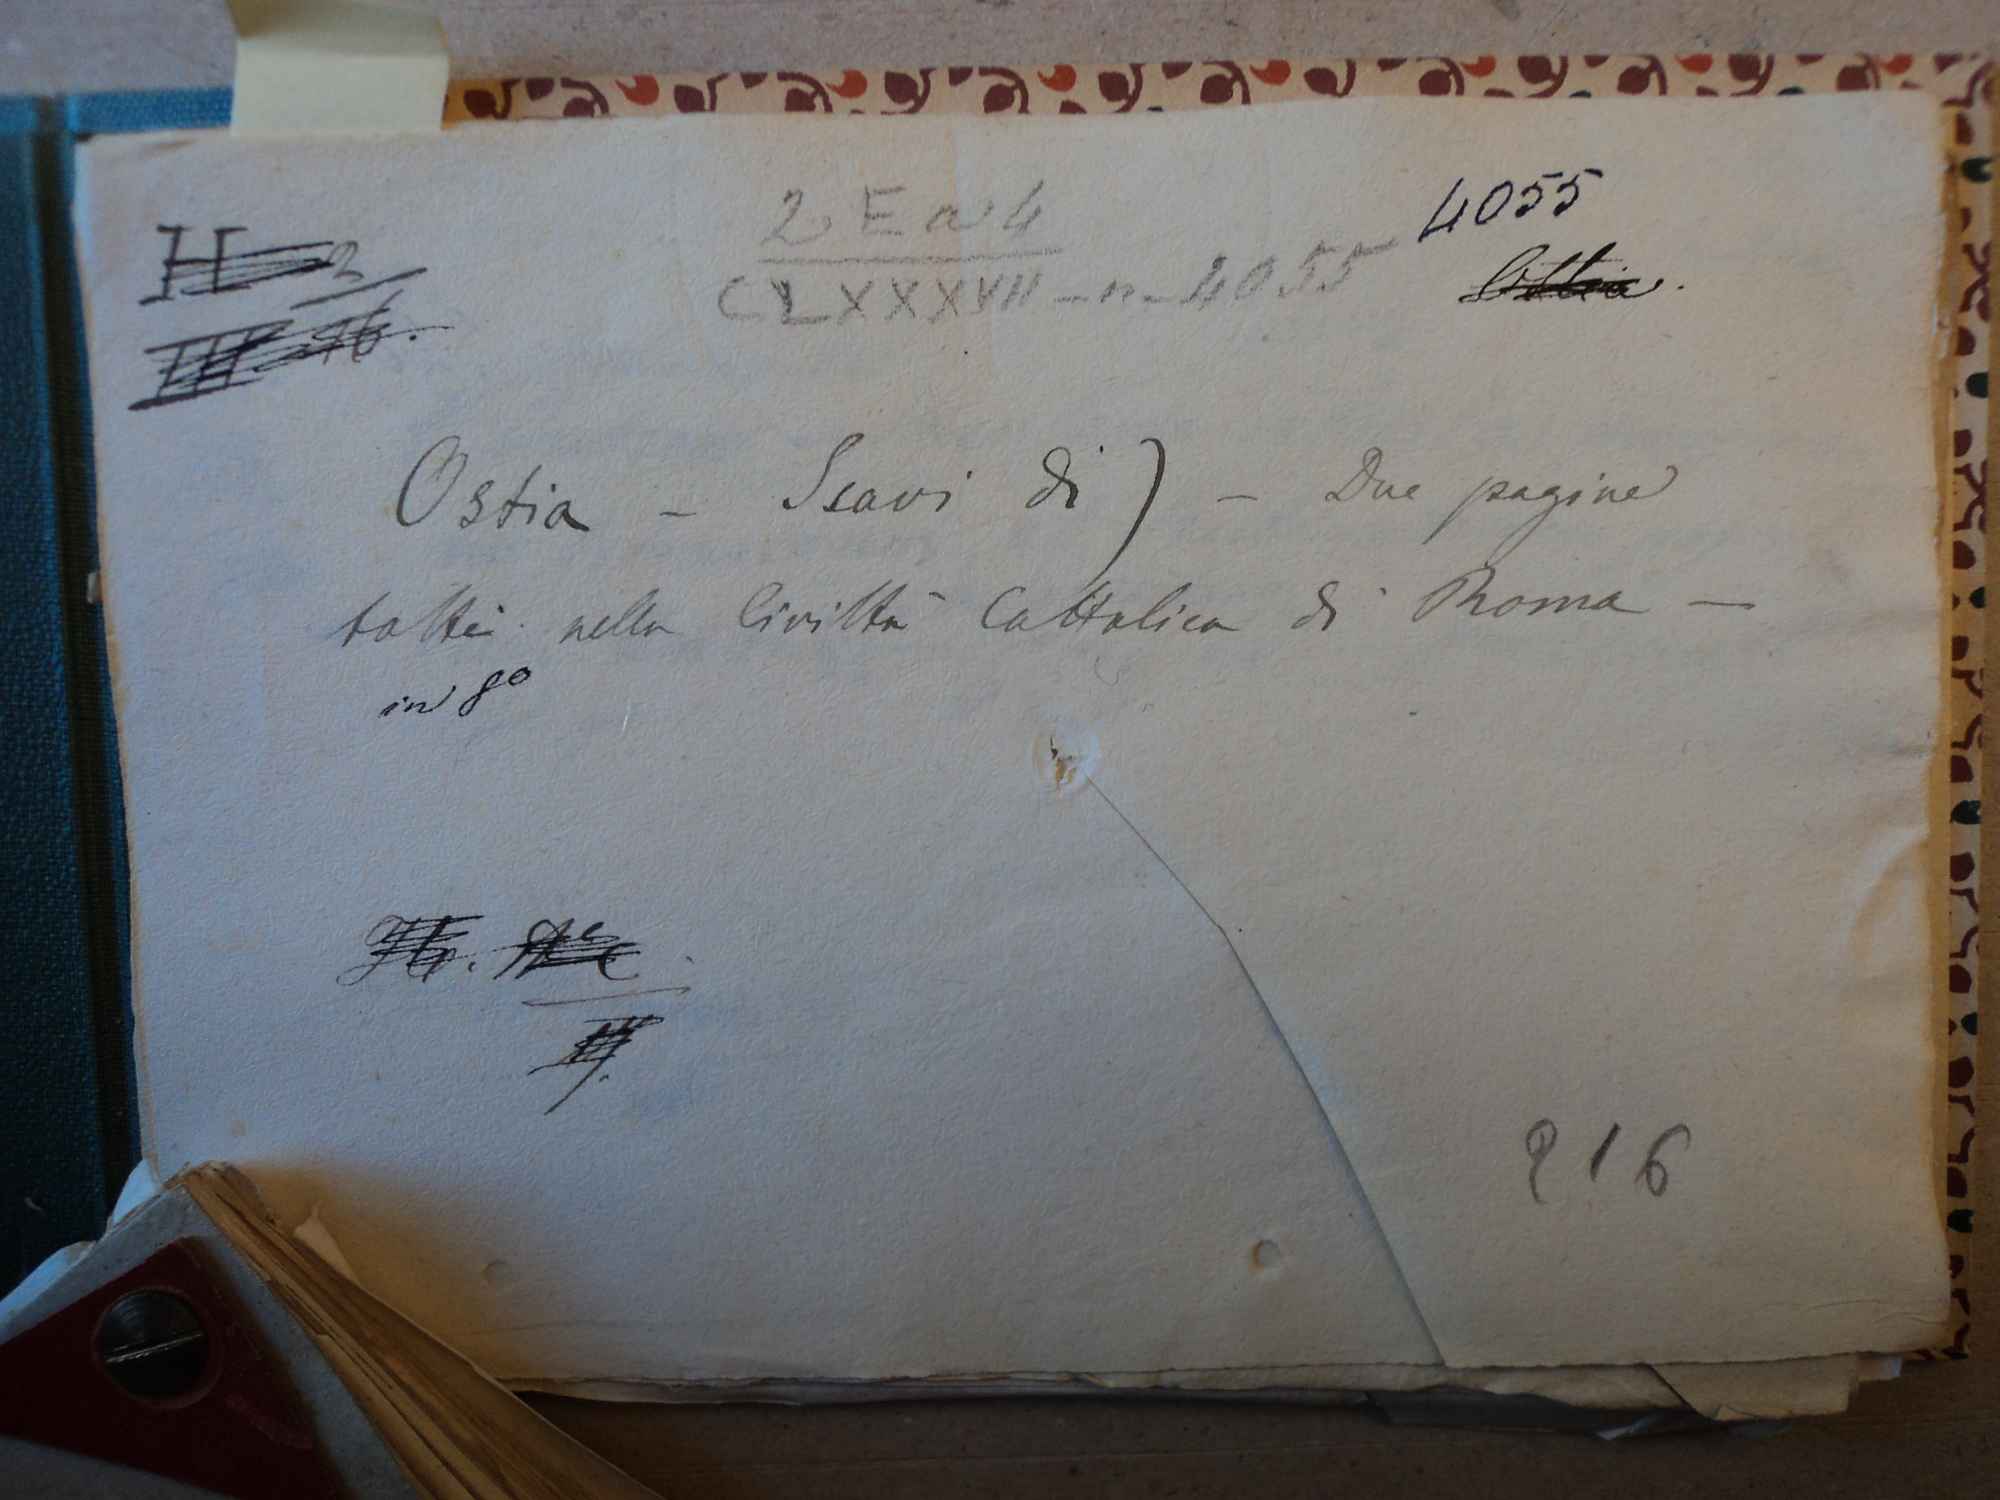 2 E a 4
CLXXXVII - n - 4055
4055
Ostia.
Ostia - Scavi di) - Due pagine
tolte nella Civiltà Cattolica di Roma -
in 8º
216